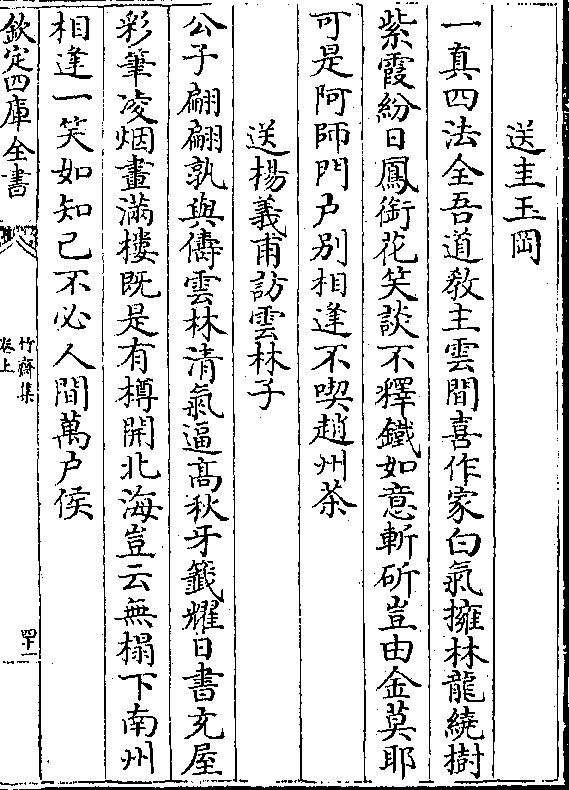 送圭玉岡
一真四法全吾道敎主雲間喜作家白氣擁林龍繞樹
紫霞紛日鳳銜花笑談不釋鐵如意斬斫豈由金莫耶
可是阿師門户別相逢不喫趙州茶
送楊義甫訪雲林子
公子翩翩孰與儔雲林清氣逼髙秋牙籤耀日書充屋
彩筆凌烟畫滿樓既是有樽開北海豈云無榻下南州
相逢一笑如知己不必人間萬户侯
欽定四庫全書
竹齋集
卷上
四十一